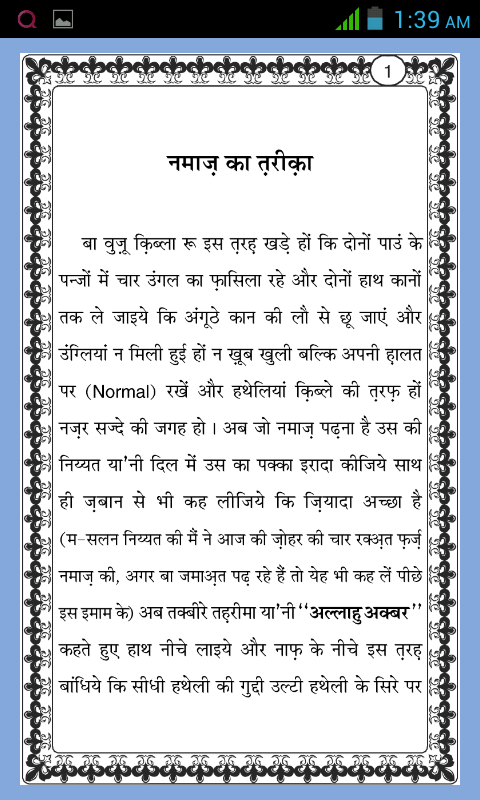 1:39 AM
1
नमाज़ का त़रीक़ा
बा वुज़ू क़िब्ला रू इस त़रह़ खड़े हों कि दोनों पाउं के
पन्जों में चार उंगल का फ़ासिला रहे और दोनों हाथ कानों
तक ले जाइये कि अंगूठे कान की लौ से छू जाएं और
उंग्लियां न मिली हुई हों न ख़ूब खुली बल्कि अपनी ह़ालत
पर (Normal) रखें और हथेलियां क़िब्ले की त़रफ़ हों
नज़र सज्दे की जगह हो । अब जो नमाज़ पढ़ना है उस की
निय्यत या'नी दिल में उस का पक्का इरादा कीजिये साथ
ही ज़बान से भी कह लीजिये कि ज़ियादा अच्छा है
(म-सलन निय्यत की मैं ने आज की ज़ोहर की चार रक्अ़त फ़र्ज़
नमाज़ की, अगर बा जमाअ़त पढ़ रहे हैं तो येह भी कह लें पीछे
इस इमाम के) अब तक्बीरे तह़रीमा या'नी ‘‘अल्लाहु अक्बर’’
कहते हुए हाथ नीचे लाइये और नाफ़ के नीचे इस त़रह़
बांधिये कि सीधी हथेली की गुद्दी उल्टी हथेली के सिरे पर